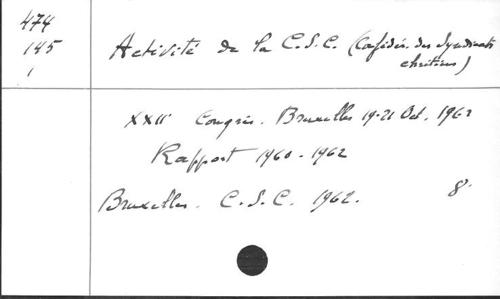 474
145
1
Activité de la C.S.C. (Conféder. des Syndicats
chrétiens)
XXIIe Congrès. Bruxelles 19-21 Oct. 1962
Rapport 1960-1962
Bruxelles. C.S.C. 1962. 8°